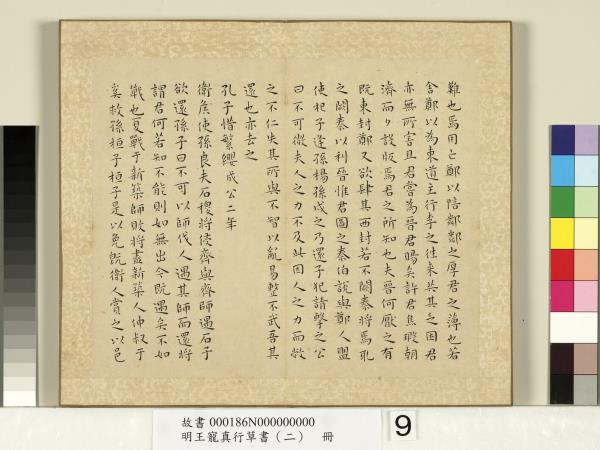 難也焉用亡鄭以陪鄰鄰之厚君之薄也若
舍鄭以為東道主行李之往來共其乏困君
亦無所害且君嘗為晉君賜矣許君焦瑕朝
濟而夕設版焉君之所知也夫晉何厭之有
既東封鄭又欲肆其西封若不闕秦將焉取
之闕秦以利晉惟君圖之秦伯說與鄭人盟
使杞子逢孫楊孫戍之乃還子犯請擊之公
曰不可微夫人之力不及此因人之力而敝
之不仁失其所與不智以亂易整不武吾其
還也亦去之
孔子惜繁纓 成公二年
衛侯使孫良夫石稷將侵齊與齊師遇石子
欲還孫子曰不可以師伐人遇其師而還將
謂君何若知不能則如無出今既遇矣不如
戰也夏戰于新築師敗將盡新築人仲叔于
奚救孫桓子桓子是以免既衛人賞之以邑
故書 000186N000000000
明王寵真行草書（二） 冊
9